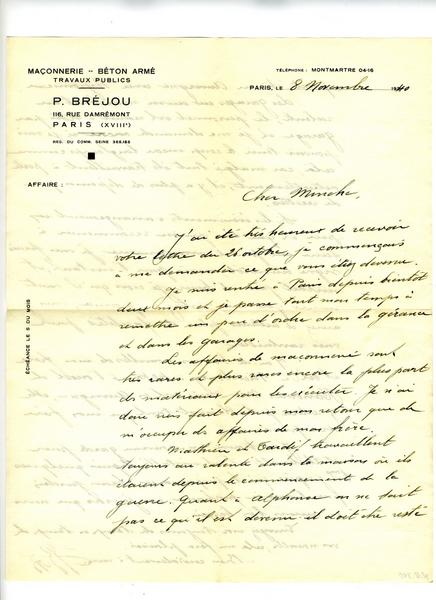 MAÇONNERIE -- BÉTON ARMÉ
TRAVAUX PUBLICS
P. BRÉJOU
116, RUE DAMRÉMONT
PARIS (XVIIIe)
REG. DU COMM. SEINE 368.188
TÉLÉPHONE : MONTMARTRE 04-16
PARIS, LE 8 Novembre 1940
AFFAIRE :
ÉCHÉANCE LE 5 DU MOIS
Cher Minche,
J'ai été très heureux de recevoir
votre lettre du 26 octobre, je commençais
à me demander ce que vous étiez devenu.
Je suis rentré à Paris depuis bientôt
deux mois et je passe tout mon temps à
remettre un peu d'ordre dans la gérance
et dans les garages.
Les affaires de maçonnerie sont
très rares et plus rares encore la plus part
des matériaux pour les exécuter. Je n'ai
donc rien fait depuis mon retour que de
m'occuper des affaires de mon frère.
Mathieu et Tardif travaillent
toujours au ralenti dans la maison où ils
étaient depuis le commencement de la
guerre. Quant à Alphonse on ne sait
pas ce qu'il est devenu il doit être resté